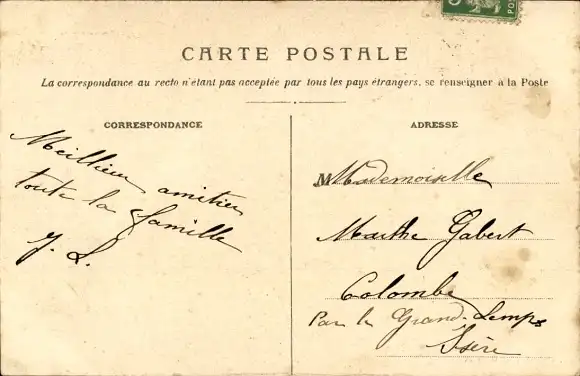 CARTE POSTALE
La correspondance au recto n'étant pas acceptée par tous les pays étrangers, se renseigner à la Poste
CORRESPONDANCE
Meillieur amitier
toute la famille
J. L.
ADRESSE
M Mademoiselle
Marthe Gabert
Colombe
Par le Grand-Lemps
Isère